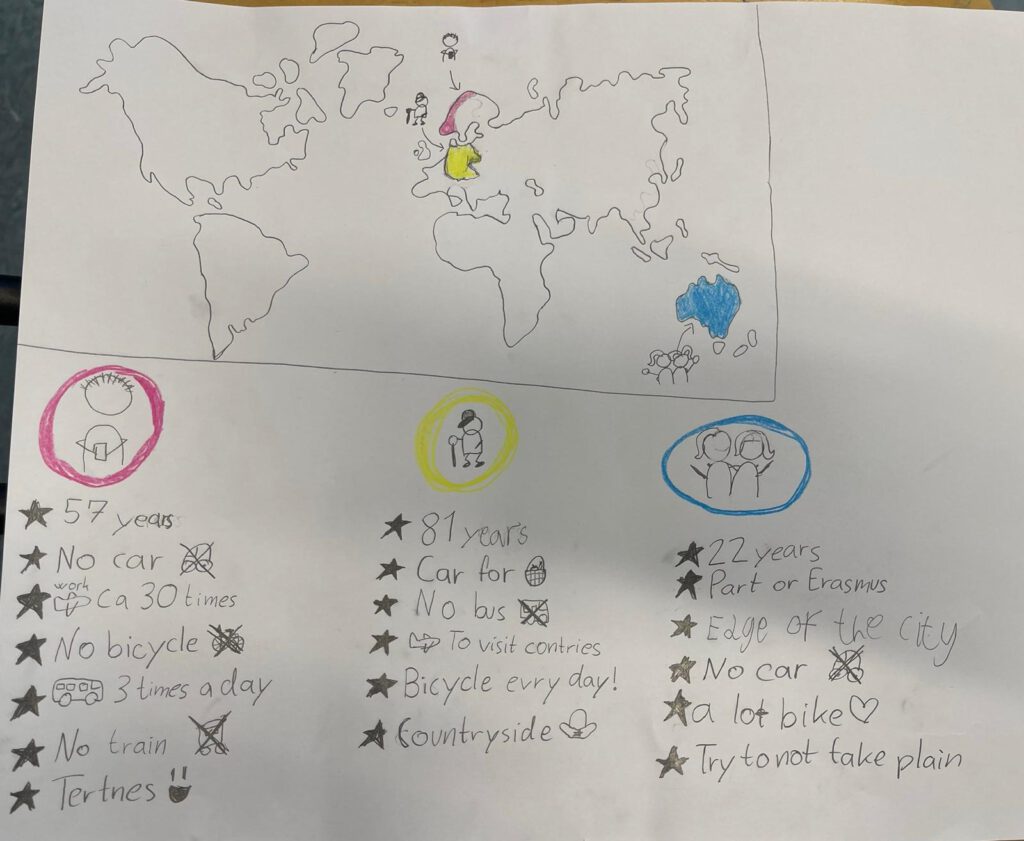 57 years
No car
work
Ca 30 times
No bicycle
3 times a day
No train
Tertnes
81 years
Car for
No bus
To visit contries
Bicycle evry day!
Countryside
22 years
Part or Erasmus
Edge of the city
No car
a lot bike
Try to not take plain